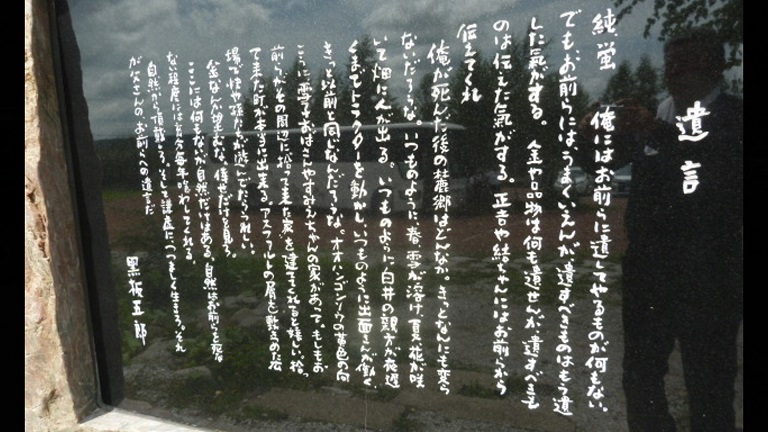 遺言
純、蛍　俺にはお前らに遺してやるものが何もない。
でも、お前らには、うまくいえんが遺すべきものはもう遺
した気がする。金や品物は何も遺せんが、遺すべきも
のは伝えた気がする。正吉や結ちゃんにはお前らから
伝えてくれ
俺が死んだ後の麓郷はどんなか。きっとなんにも変ら
ないだろうな。いつものように、春、雪が溶け、夏、花が咲
いて畑に人が出る。いつものように白井の親方が夜遅
くまでトラクターを動かし、いつものように出面さんが働く
きっと以前と同じなんだろうな。オオハンゴンソウの黄色の向
こうに雪子おばさんやすみえちゃんの家があって。もしもお
前らがその周辺に拾って来た家を建ててくれると嬉しい。拾
って来た町が本当に出来る。アスファルトの屑を敷きつめた広
場で快や孫たちが遊んでたらうれしい。
金なんか望むな。倖せだけを見ろ。
ここには何もないが自然だけはある。自然はお前らを死な
ない程度には充分毎年喰わしてくれる。
自然から頂戴しろ。そして謙虚に、つつましく生きろ。それ
が父さんの、お前らへの遺言だ
黒板五郎